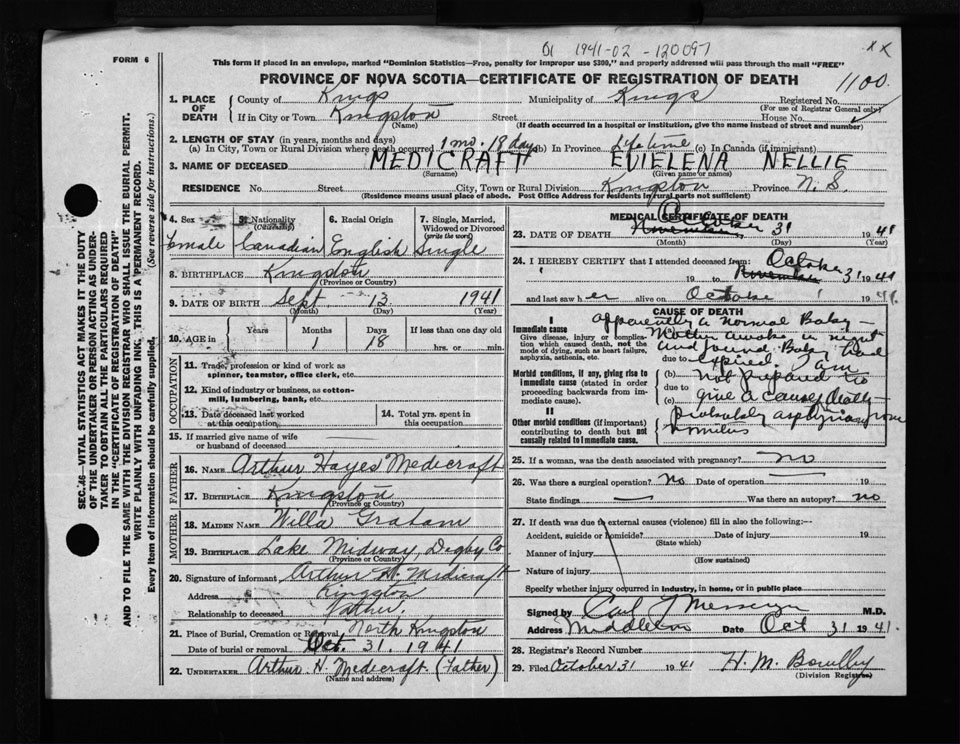 1941-02-120097
x x
FORM 6
This form if placed in an envelope, marked "Dominion Statistics—Free, penalty for improper use $300," and properly addressed will pass through the mail "FREE"
PROVINCE OF NOVA SCOTIA—CERTIFICATE OF REGISTRATION OF DEATH
1100
1. PLACE OF DEATH { County of Kings Municipality of Kings Registered No.
(For use of Registrar General only)
If in City or Town Kingston Street House No.
(Name) (If death occurred in a hospital or institution, give the name instead of street and number)
2. LENGTH OF STAY (in years, months and days)
(a) In City, Town or Rural Division where death occurred 1 mo. 18 days (b) In Province Lifetime (c) In Canada (if immigrant)
3. NAME OF DECEASED MEDICRAFT EVIELENA NELLIE
(Surname) (Given name or names)
RESIDENCE No. Street City, Town or Rural Division Kingston Province N. S.
(Residence means usual place of abode. Post Office Address for residents in rural parts not sufficient)
4. Sex 5. Nationality (Citizenship) 6. Racial Origin 7. Single, Married, Widowed or Divorced (write the word)
Female Canadian English Single
8. BIRTHPLACE Kingston
(Province or Country)
9. DATE OF BIRTH Sept 13 1941
(Month) (Day) (Year)
10. AGE in { Years Months Days If less than one day old
1 18 hrs. or min.
OCCUPATION
11. Trade, profession or kind of work as spinner, teamster, office clerk, etc.
12. Kind of industry or business, as cotton-mill, lumbering, bank, etc.
13. Date deceased last worked at this occupation 14. Total yrs. spent in this occupation
15. If married give name of wife or husband of deceased
FATHER
16. NAME Arthur Hayes Medicraft
17. BIRTHPLACE Kingston
(Province or Country)
MOTHER
18. MAIDEN NAME Willa Graham
19. BIRTHPLACE Lake Midway, Digby Co
(Province or Country)
20. Signature of informant Arthur H. Medicraft
Address Kingston
Relationship to deceased Father.
21. Place of Burial, Cremation or Removal North Kingston
Date of burial or removal Oct. 31. 1941
22. UNDERTAKER Arthur H. Medicraft (Father)
(Name and address)
MEDICAL CERTIFICATE OF DEATH
23. DATE OF DEATH November October 31 1941
(Month) (Day) (Year)
24. I HEREBY CERTIFY that I attended deceased from: October
19 to November 31 1941
and last saw her alive on October 1941.
CAUSE OF DEATH
I
Immediate cause
Give disease, injury or complication which caused death, not the mode of dying, such as heart failure, asphyxia, asthenia, etc.
Morbid conditions, if any, giving rise to immediate cause (stated in order proceeding backwards from immediate cause).
II
Other morbid conditions (if important) contributing to death but not causally related to immediate cause.
apparently a normal Baby—
(a) Mother awoke in night
and found Baby had
due to expired. I am
(b) not prepared to
due to
(c) give a cause of death—
Probably asphyxia from
vomitus
25. If a woman, was the death associated with pregnancy? no
26. Was there a surgical operation? No Date of operation —
State findings — Was there an autopsy? no
27. If death was due to external causes (violence) fill in also the following:—
Accident, suicide or homicide? Date of injury 19
(State which)
Manner of injury
(How sustained)
Nature of injury
Specify whether injury occurred in industry, in home, or in public place
Signed by M.D.
Address Middleton Date Oct 31 1941.
28. Registrar's Record Number
29. Filed October 31 1941 H. M. Bowlby
(Division Registrar)
SEC. 46—VITAL STATISTICS ACT MAKES IT THE DUTY
OF THE UNDERTAKER OR PERSON ACTING AS UNDER-
TAKER TO OBTAIN ALL THE PARTICULARS REQUIRED
IN THE "CERTIFICATE OF REGISTRATION OF DEATH"
AND TO FILE THE SAME WITH THE DIVISION REGISTRAR WHO SHALL ISSUE THE BURIAL PERMIT.
WRITE PLAINLY WITH UNFADING INK, THIS IS A PERMANENT RECORD.
Every item of information should be carefully supplied. (See reverse side for instructions.)